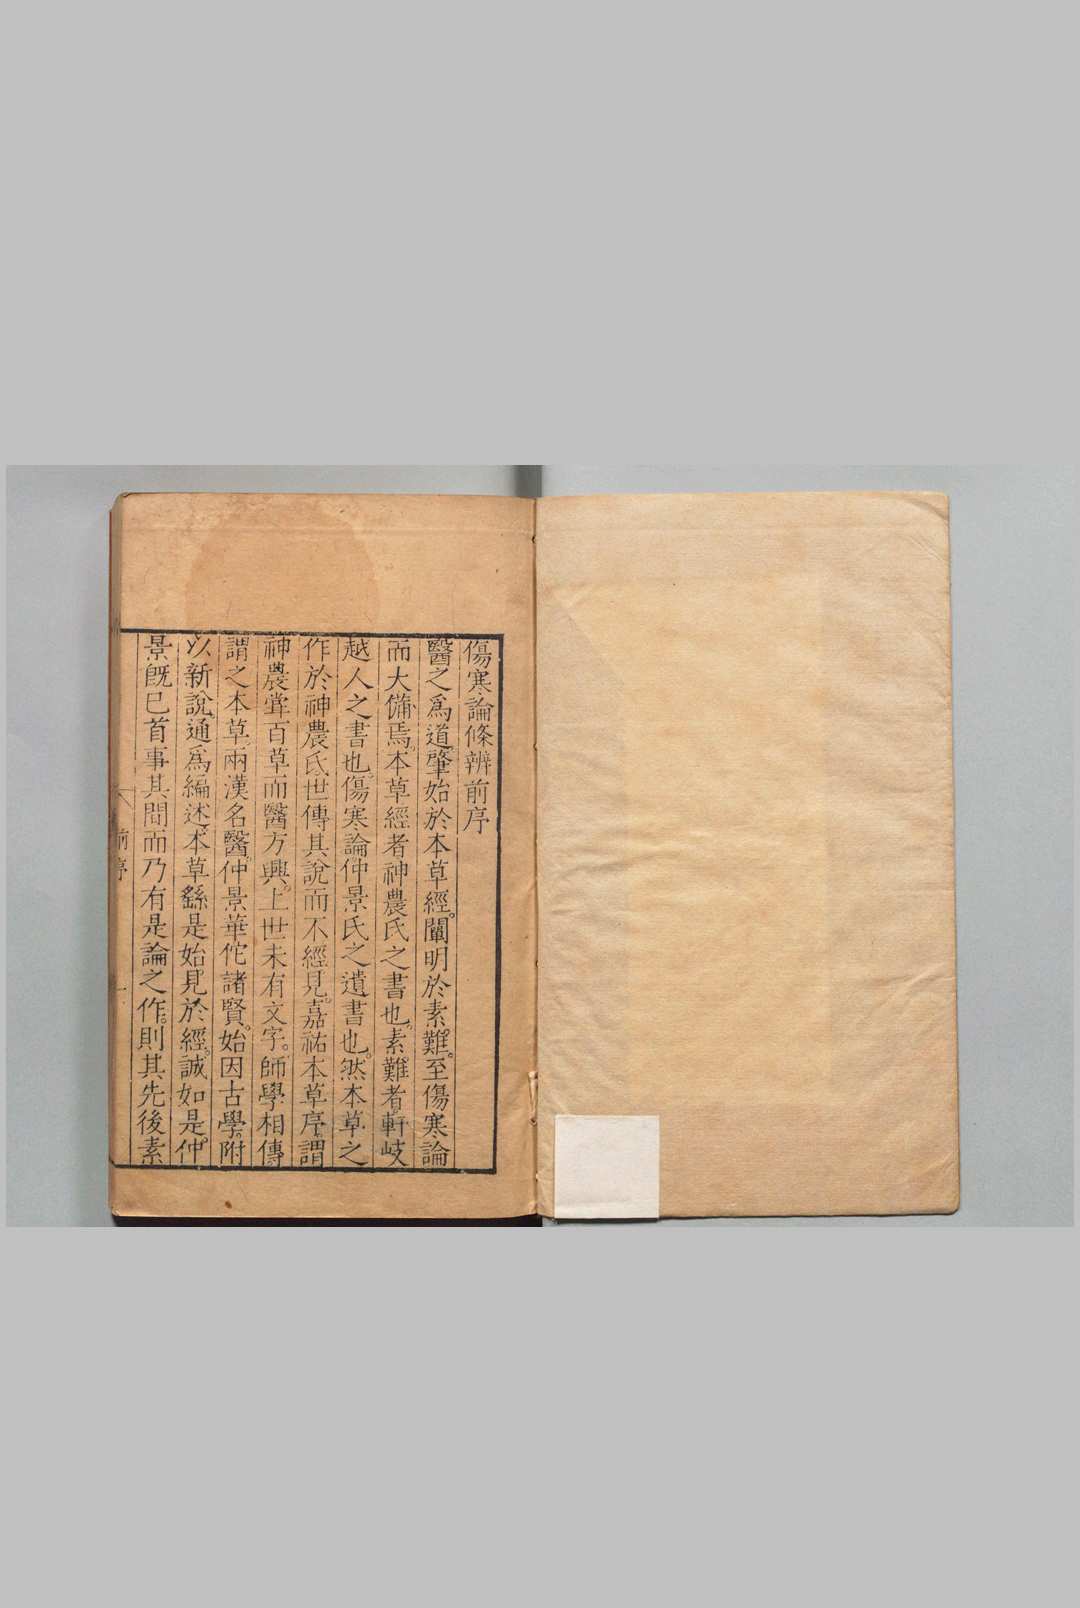 傷寒論條辨前序
醫之爲道。肇始於本草經。闡明於素難。至傷寒論
而大備焉。本草經者神農氏之書也。素難者軒岐
越人之書也。傷寒論。仲景氏之遺書也。然本草之
作於神農氏世傳其說而不經見。嘉祐本草序。謂
神農甞百草而醫方興。上世未有文字。師學相傳
謂之本草。兩漢名醫。仲景華佗諸賢。始因古學。附
以新說。通爲編述。本草繇是始見於經。誠如是。仲
景旣已首事其間而乃有是論之作。則其先後素
前序
一